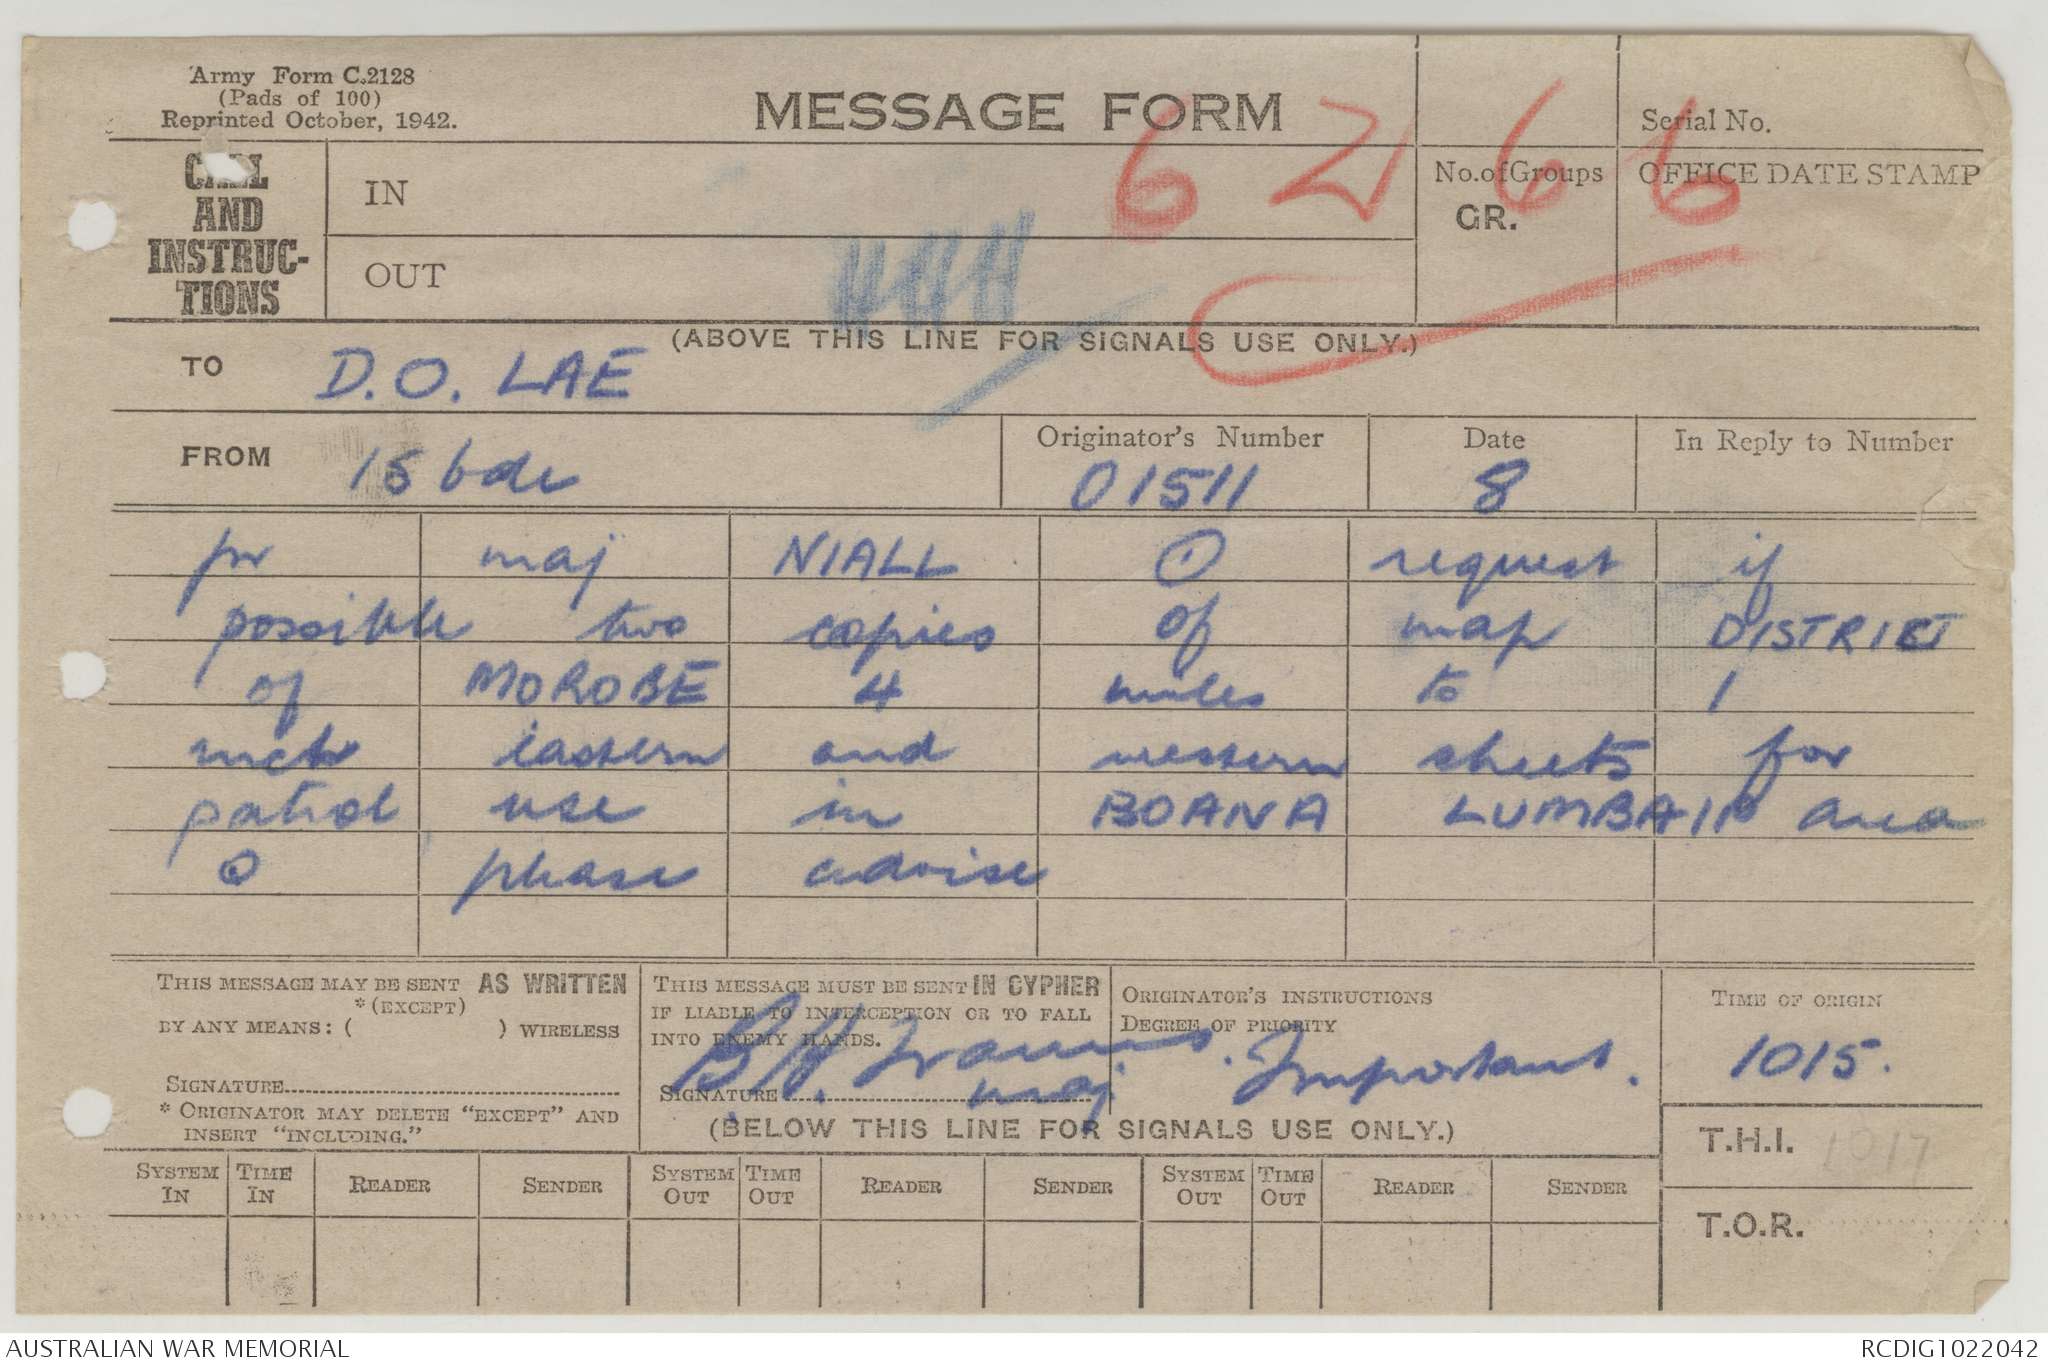 Army Form C.2128
(Pads of 100)
Reprinted October, 1942.
MESSAGE FORM
Serial No.
6266
CALL
AND
INSTRUC-
TIONS
IN
OUT
No. of Groups
GR.
OFFICE DATE STAMP
(ABOVE THIS LINE FOR SIGNALS USE ONLY.)
TO D.O. LAE
FROM 15 bde
Originator's Number 01511
Date 8
In Reply to Number
for maj NIALL ① request if
possible two copies of map DISTRICT
of MOROBE 4 miles to 1
inch eastern and western sheets for
patrol use in BOANA LUMBAIP area
O please advise
THIS MESSAGE MAY BE SENT AS WRITTEN
*(EXCEPT)
BY ANY MEANS: ( ) WIRELESS
SIGNATURE
* ORIGINATOR MAY DELETE "EXCEPT" AND
INSERT "INCLUDING."
THIS MESSAGE MUST BE SENT IN CYPHER
IF LIABLE TO INTERCEPTION OR TO FALL
INTO ENEMY HANDS.
SIGNATURE maj
ORIGINATOR'S INSTRUCTIONS
DEGREE OF PRIORITY
Important.
TIME OF ORIGIN
1015.
(BELOW THIS LINE FOR SIGNALS USE ONLY.)
T.H.I. 1017
T.O.R.
SYSTEM IN TIME IN READER SENDER SYSTEM OUT TIME OUT READER SENDER SYSTEM OUT TIME OUT READER SENDER
AUSTRALIAN WAR MEMORIAL
RCDIG1022042